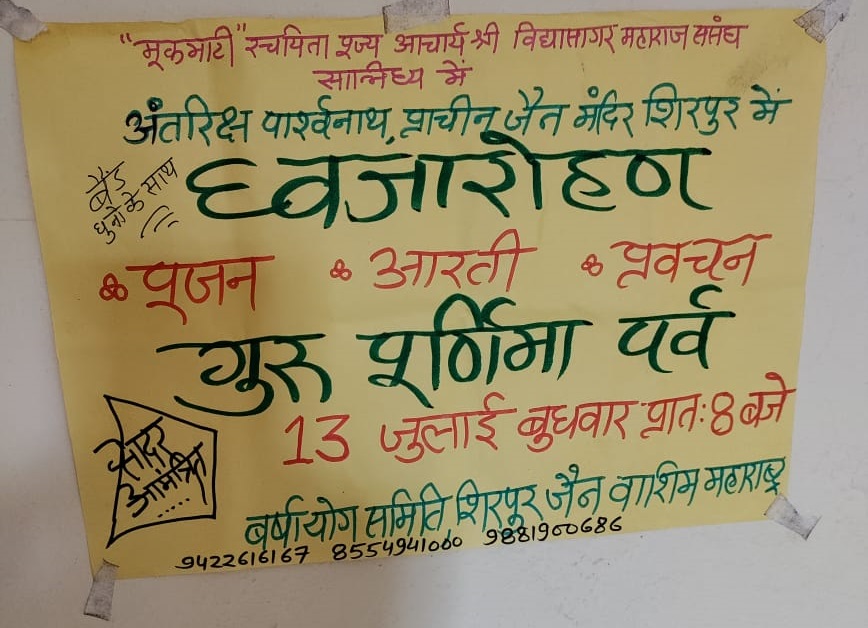 "मूकमाटी" रचयिता पूज्य आचार्य श्री विद्यासागर महाराज ससंघ
सानिध्य में
अंतरिक्ष पार्श्वनाथ, प्राचीन जैन मंदिर शिरपुर में
बैंड
धुनों के साथ
ध्वजारोहण
पूजन आरती प्रवचन
गुरु पूर्णिमा पर्व
13 जुलाई बुधवार प्रातः 8 बजे
सादर
आमंत्रित
.....
वर्षायोग समिति शिरपुर जैन वाशिम महाराष्ट्र
9422616167 8554941000 9881900686